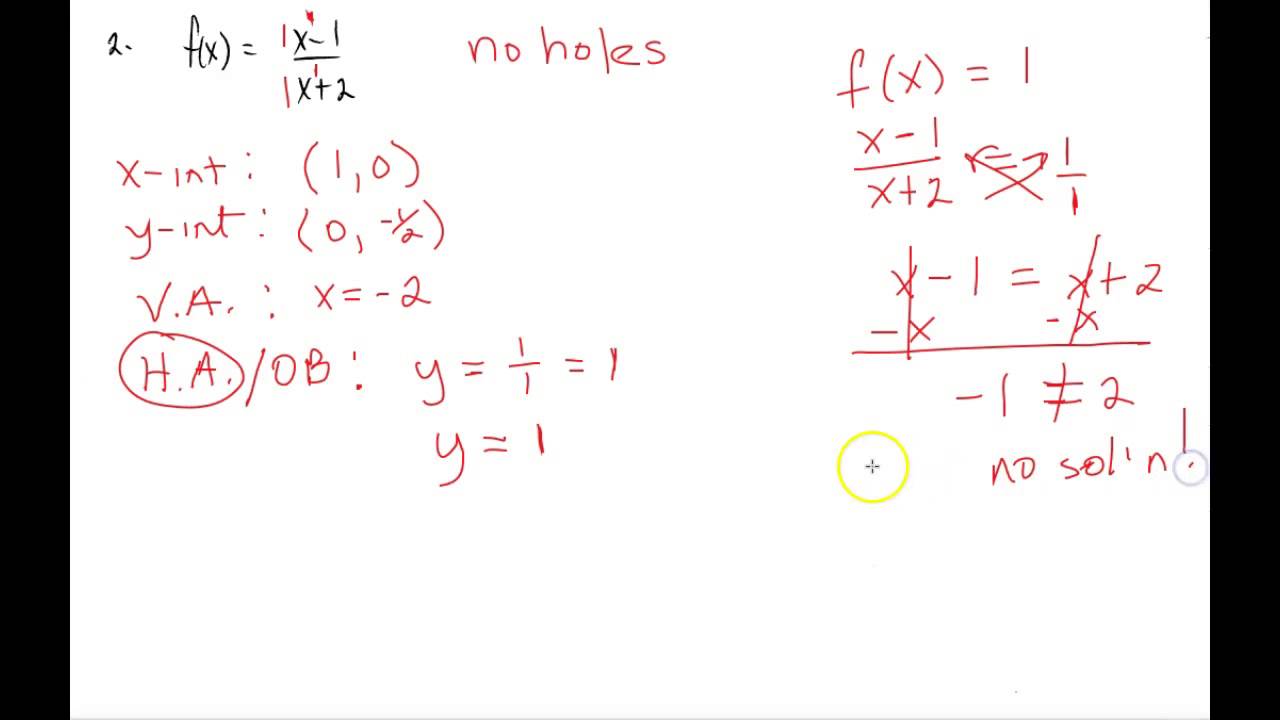 2. f(x) = 1x^1-1/1x^1+2 no holes
x-int : (1,0)
y-int : (0, -1/2)
V.A. : x = -2
H.A./OB : y = 1/1 = 1
y = 1
f(x) = 1
x-1/x+2 = 1/1
x - 1 = x + 2
- x - x
-1 ≠ 2
no sol'n!